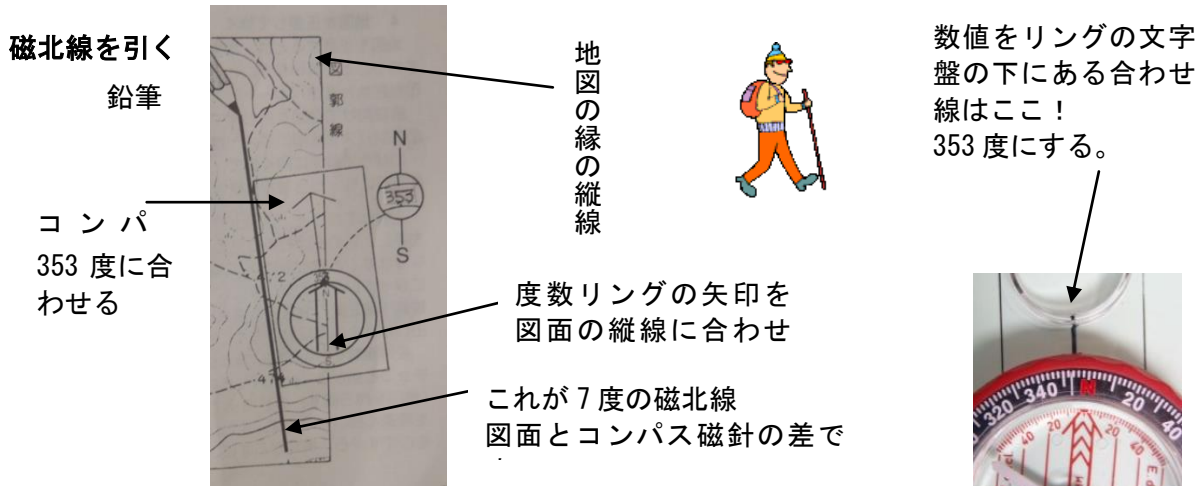 磁北線を引く
鉛筆
コンパ
353 度に合
わせる
図郭線
N
353
S
地図の縁の縦線
度数リングの矢印を
図面の縦線に合わせ
これが 7 度の磁北線
図面とコンパス磁針の差で
数値をリングの文字
盤の下にある合わせ
線はここ！
353 度にする。
320 340 N 20 40
40 20 20 40